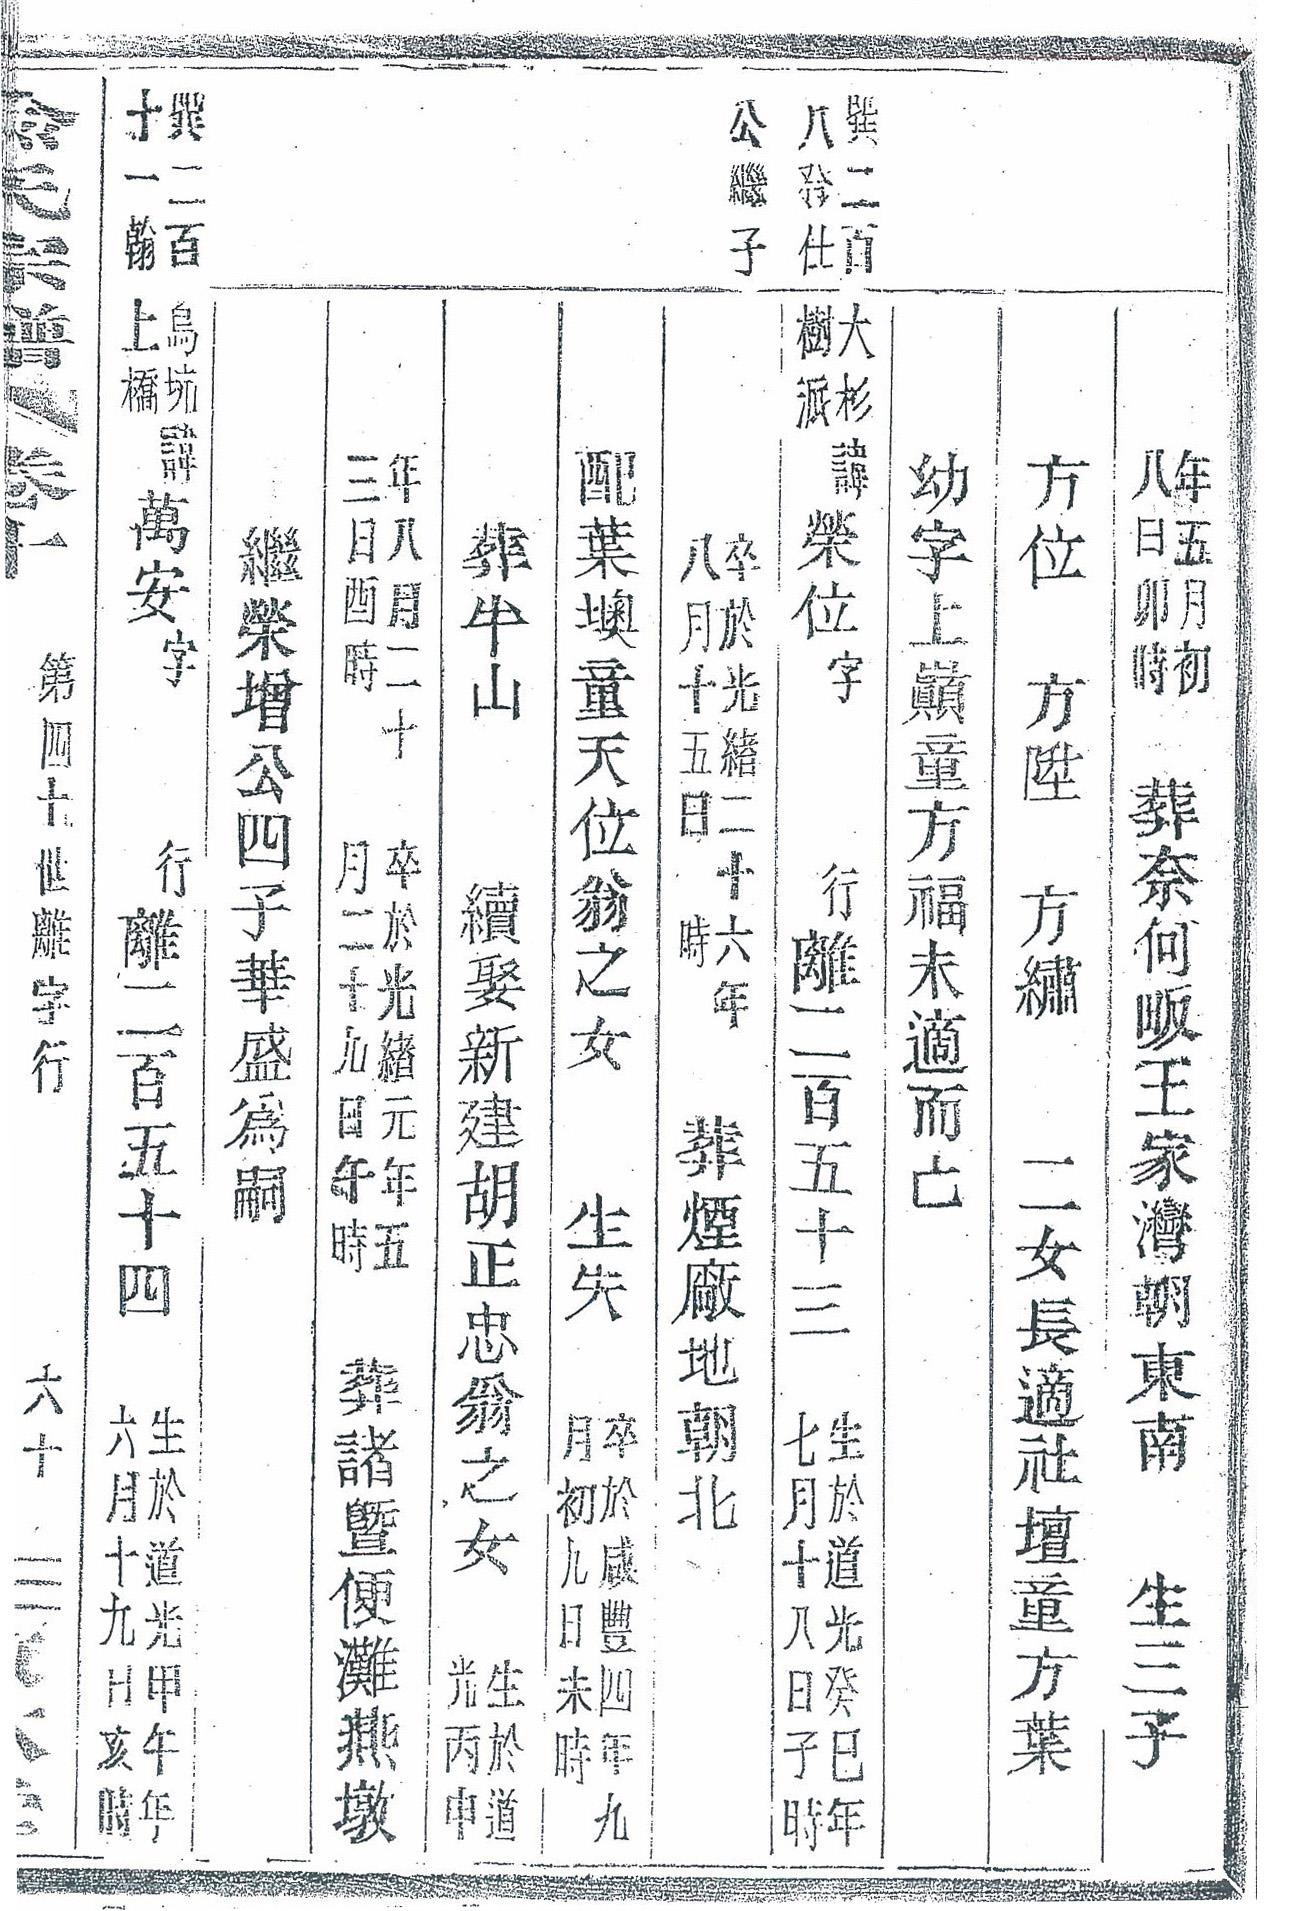 年五月初八日卯時　葬奈何畈王家灣朝東南　生三子
方位　方陞　方繡　二女長適社壇童方葉
幼字上巔童方福未適而亡
巽二百八發仕公繼子　大杉樹派　諱榮位字　行離二百五十三　生於道光癸巳年七月十八日子時
卒於光緒二十六年八月十五日　時　葬煙廠地朝北
配葉墺童天位翁之女　生失　卒於咸豐四年九月初九日未時
葬牛山　續娶新建胡正忠翁之女　生於道光丙申
年八月二十三日酉時　卒於光緒元年五月二十九日午時　葬諸暨便灘燕墩
繼榮增公四子華盛為嗣
巽二百十一翰　烏坑上橋　諱萬安字　行離二百五十四　生於道光甲午年六月十九日亥時
氏宗譜　卷十一　第四十世離字行　六十　三